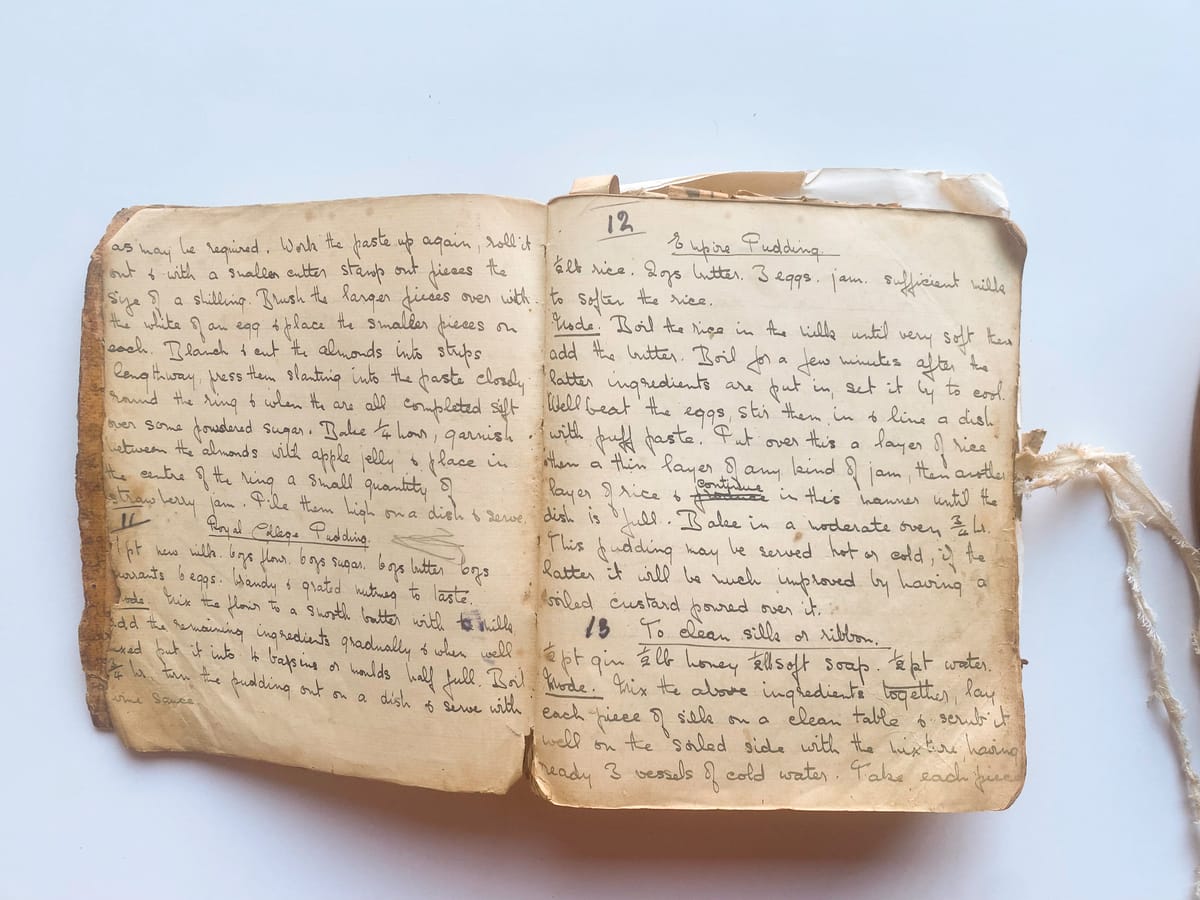 as may be required. Work the paste up again, roll it
out & with a smaller cutter stamp out pieces the
size of a shilling. Brush the larger pieces over with
the white of an egg & place the smaller pieces on
each. Blanch & cut the almonds into strips
lengthway, press them slanting into the paste closely
round the ring & when the are all completed sift
over some powdered sugar. Bake 1/4 hour, garnish
between the almonds with apple jelly & place in
the centre of the ring a small quantity of
strawberry jam. Pile them high on a dish & serve.
11
Royal College Pudding.
pt new milk. 6ozs flour. 6ozs sugar. 6ozs butter 6ozs
currants 6 eggs. brandy & grated nutmeg to taste.
Mode. Mix the flour to a smooth batter with milk
add the remaining ingredients gradually & when well
mixed put it into 4 basins or moulds half full. Boil
3/4 hr. turn the pudding out on a dish & serve with
wine sauce
12
Empire Pudding.
1/2lb rice. 2ozs butter. 3 eggs. jam. sufficient milk
to soften the rice.
Mode. Boil the rice in the milk until very soft then
add the butter. Boil for a few minutes after the
latter ingredients are put in, set it by to cool.
Well beat the eggs, stir them in & line a dish
with puff paste. Put over this a layer of rice
then a thin layer of any kind of jam, then another
layer of rice & continue in this manner until the
dish is full. Bake in a moderate oven 3/4 hr.
This pudding may be served hot or cold, if the
latter it will be much improved by having a
boiled custard poured over it.
13 To clean silk or ribbon.
1/2 pt gin 1/2 lb honey 1/2lb soft soap. 1/2 pt water.
Mode. Mix the above ingredients together, lay
each piece of silk on a clean table & scrub it
well on the soiled side with the mixture having
ready 3 vessels of cold water. Take each piece